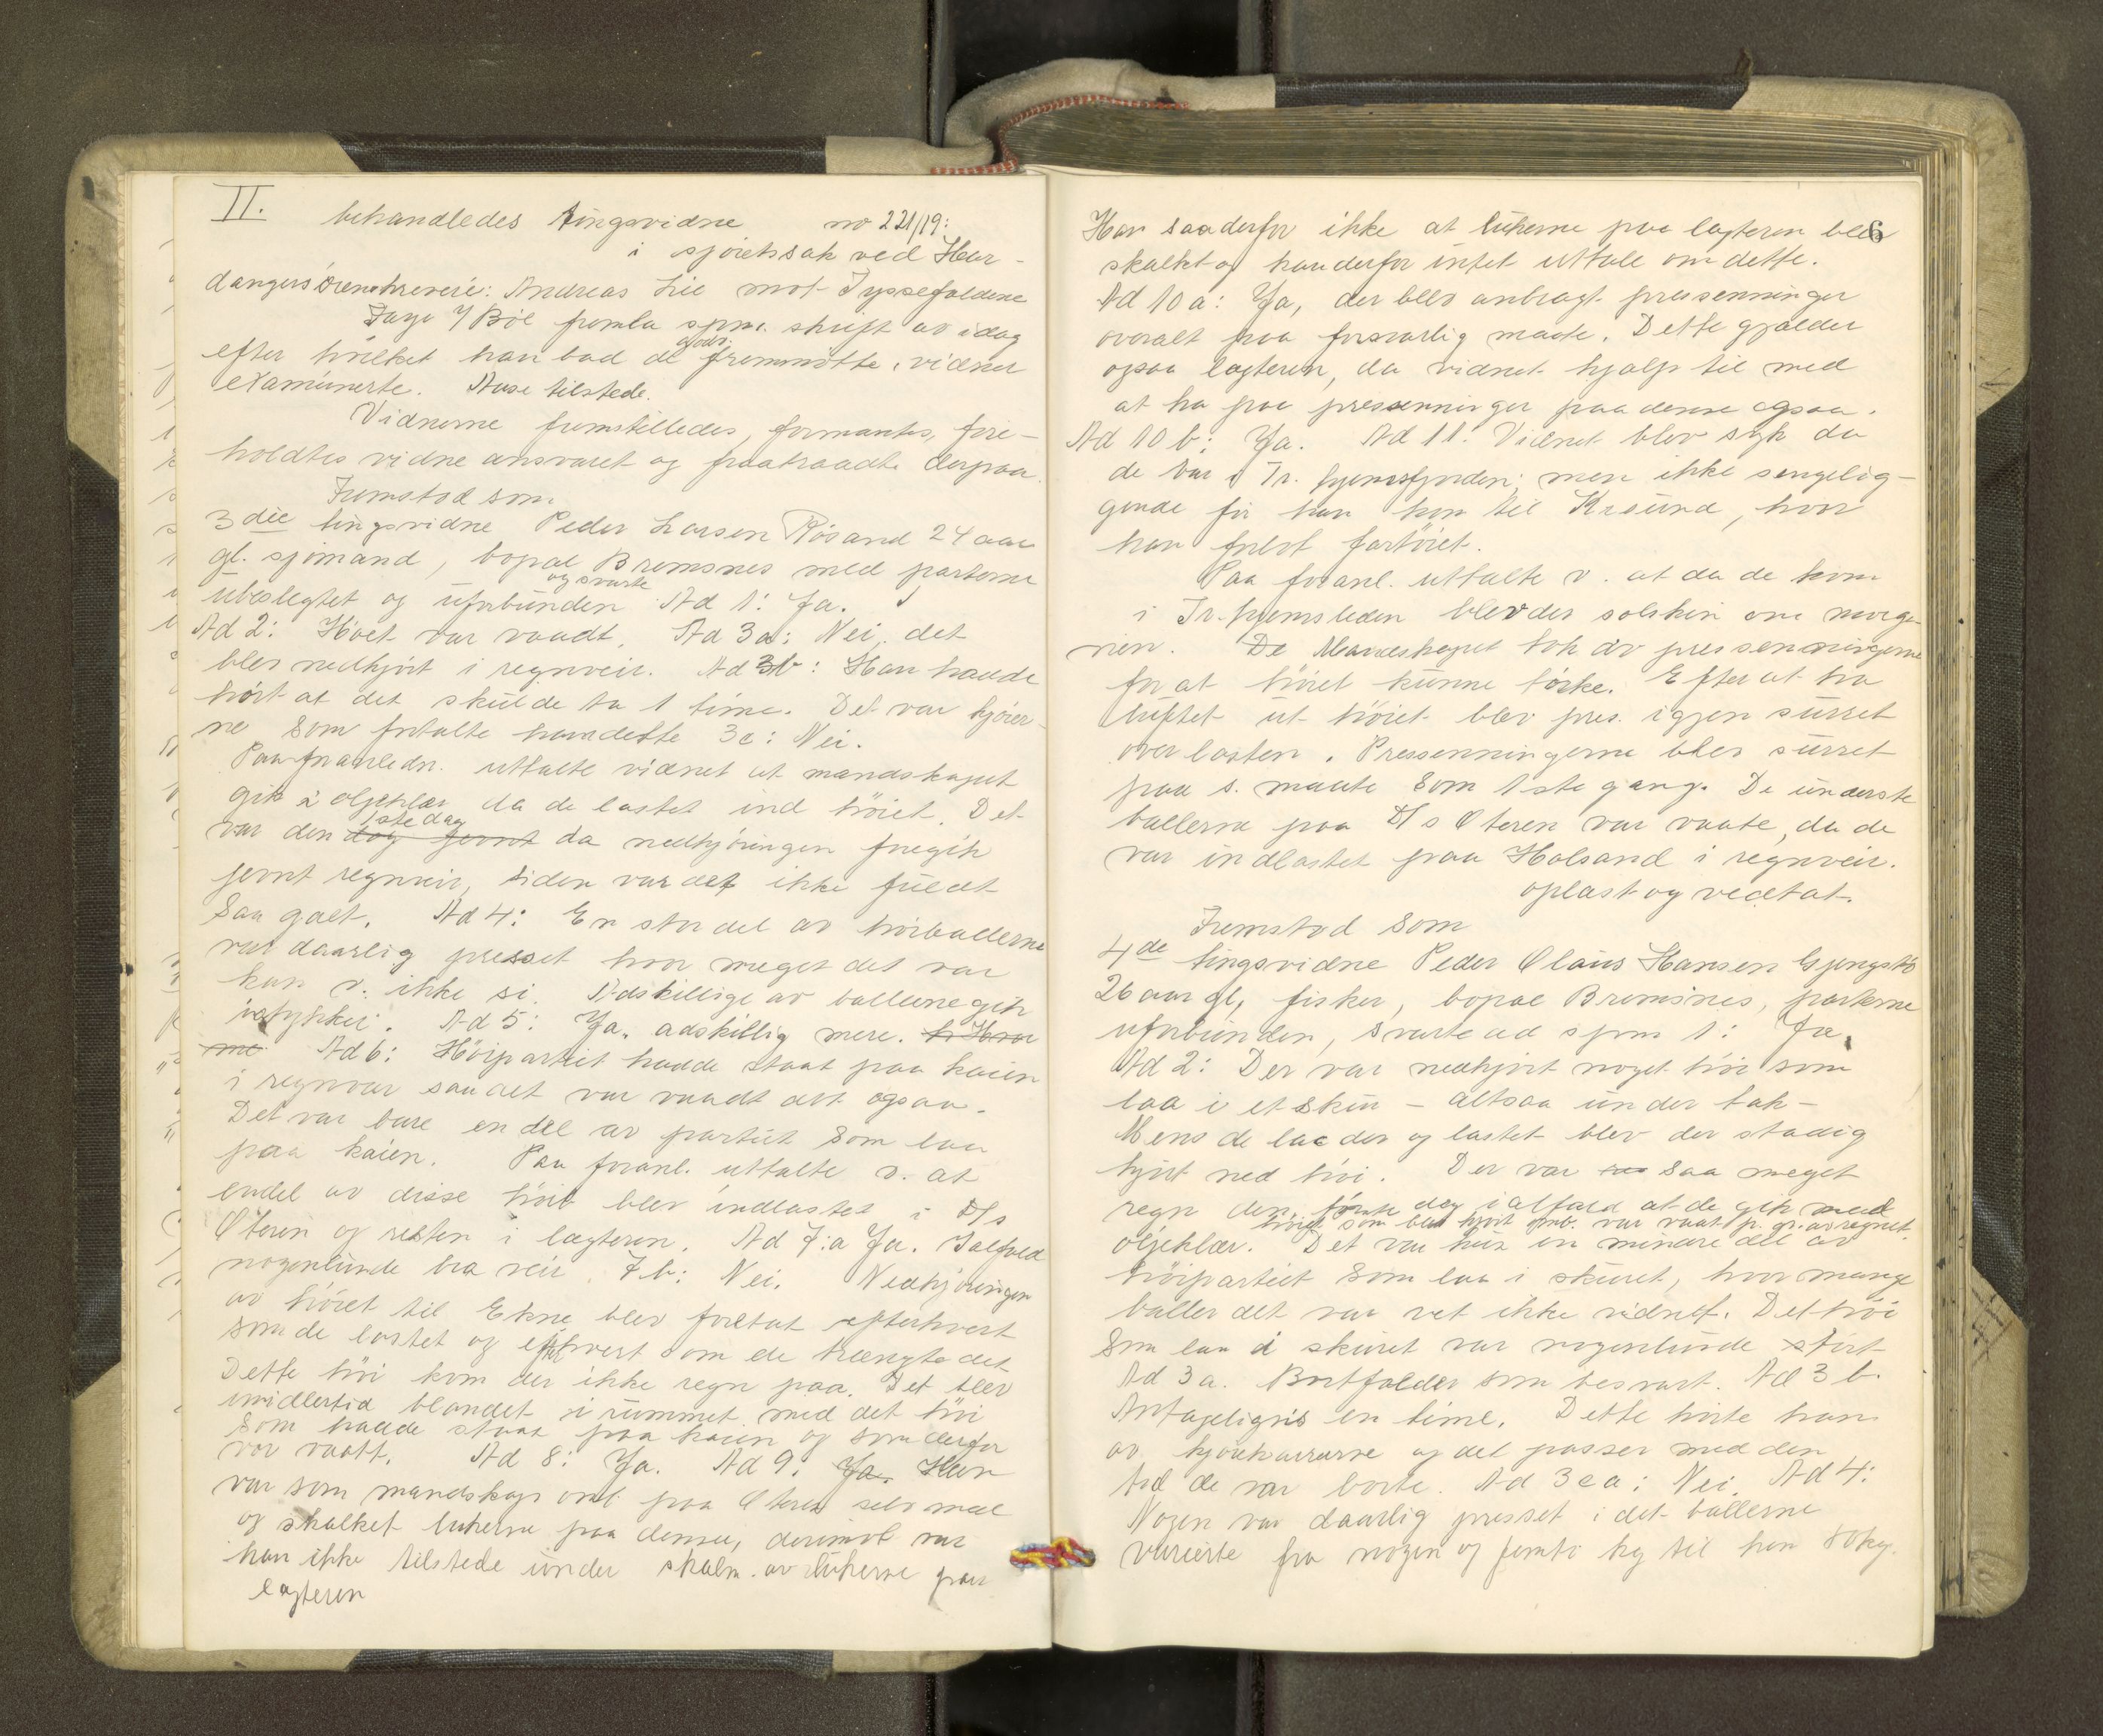 II.
behandledes tingsvidne no 221/19:
i sjøretssak ved Har-
danger sorenskriveri: Andreas Lie mot Tyssefaldene
Faye f/ Bøe fremla spm. skrift av idag
efter hvilket han bad de godv. fremmøtte vidner
examinerte. Aase tilstede.
Vidnerne fremstilledes, formantes, fore-
holdtes vidneansvaret og fraatraadte derpaa.
Fremstod som
3die tingsvidne Peder Larsen Røsand 24 aar
gl. sjømand, bopæl Bremsnes med parterne
ubeslegtet og uforbunden og svarte Ad 1: Ja.
Ad 2: Høet var vaadt. Ad 3a: Nei, det
blev nedkjørt i regnveir. Ad 3b: Han hadde
hørt at det skulde ta 1 time. Det var kjører-
ne som fortalte ham dette 3c: Nei.
Paa foranledn. uttalte vidnet at mandskapet
gik i oljeklær da de lastet ind høiet. Det
var den dog jevnt 1ste dag da nedkjøringen foregik
jevnt regnveir, siden var det ikke fuldt
saa galt. Ad 4: En stor del av høiballerne
var daarlig presset hvor meget det var
kan v. ikke si. Adskillige av ballerne gik
istykker. Ad 5: Ja, adskillig mere.
Ad 6: Høipartiet hadde staat paa kaien
i regnveir saa det var vaadt det ogsaa.
Det var bare en del av partiet som laa
paa kaien. Paa foranl. uttalte v. at
endel av disse høie blev indlastet i D/s
Oteren og resten i lægteren. Ad 7:a Ja. Ialfald
nogenlunde bra veir. 7b: Nei. Nedkjøringen
av høiet til Ekne blev foretat efterhvert
som de lastet og efterhvert som de trængte det
Dette høi kom der ikke regn paa. Det blev
imidlertid blandet i rummet med det høi
som hadde staat paa kaien og som derfor
var vaatt. Ad 8: Ja. Ad 9: Ja. Han
var som mandskap omb. paa Oteren selv med
og skalket lukerne paa denne, derimot var
han ikke tilstede under skalm. av lukerne paa
lægteren
6
Han saa derfor ikke at lukerne paa lægteren blev
skalket og kan derfor intet uttale om dette.
Ad 10 a: Ja, der blev anbragt pressenninger
overalt paa forsvarlig maate. Dette gjælder
ogsaa lægteren, da vidnet hjalp til med
at ha paa pressenninger paa denne ogsaa.
Ad 10 b: Ja. Ad 11: Vidnet blev syk da
de var i Tr. hjemsfjorden; men ikke sengelig-
gende før han kom til Krsund, hvor
han forlot fartøiet.
Paa foranl. uttalte v. at da de kom
i Tr. hjemsleden blev der solskin om morge-
nen. De Mandskapet tok av pressenningerne
for at høiet kunne tørke. Efter at ha
luftet ut høiet blev pres. igjen surret
over lasten. Pressenningerne blev surret
paa s. maate som 1ste gang. De underste
ballerne paa D/s Oteren var vaate, da de
var indlastet paa Holsand i regnveir.
oplæst og vedtat.
Fremstod som
4de tingsvidne Peder Olaus Hansen Gjengstø
26 aar gl, fisker, bopæl Bremsnes, parterne
uforbunden, svarte ad spm 1: Ja.
Ad 2: Der var nedkjørt noget høi som
laa i et skur – altsaa under tak –
Mens de laa der og lastet blev der stadig
kjørt ned høi. Der var saa meget
regn den første dag ialfald at de gik med
høiet som blev kjørt omb. var vaat p. gr. av regnet.
oljeklær. Det var kun en mindre del av
høipartiet som laa i skuret, hvor mange
baller det var vet ikke vidnet. Det høi
som laa i skuret var nogenlunde tørt
Ad 3a. Bortfalder som besvart. Ad 3 b.
Antageligvis en time. Dette hørte han
av kjørekararne og det passer med den
tid de var borte. Ad 3 c a: Nei. Ad 4:
Nogen var daarlig presset i det ballerne
varierte fra nogen og femti kg til hen 80 kg.